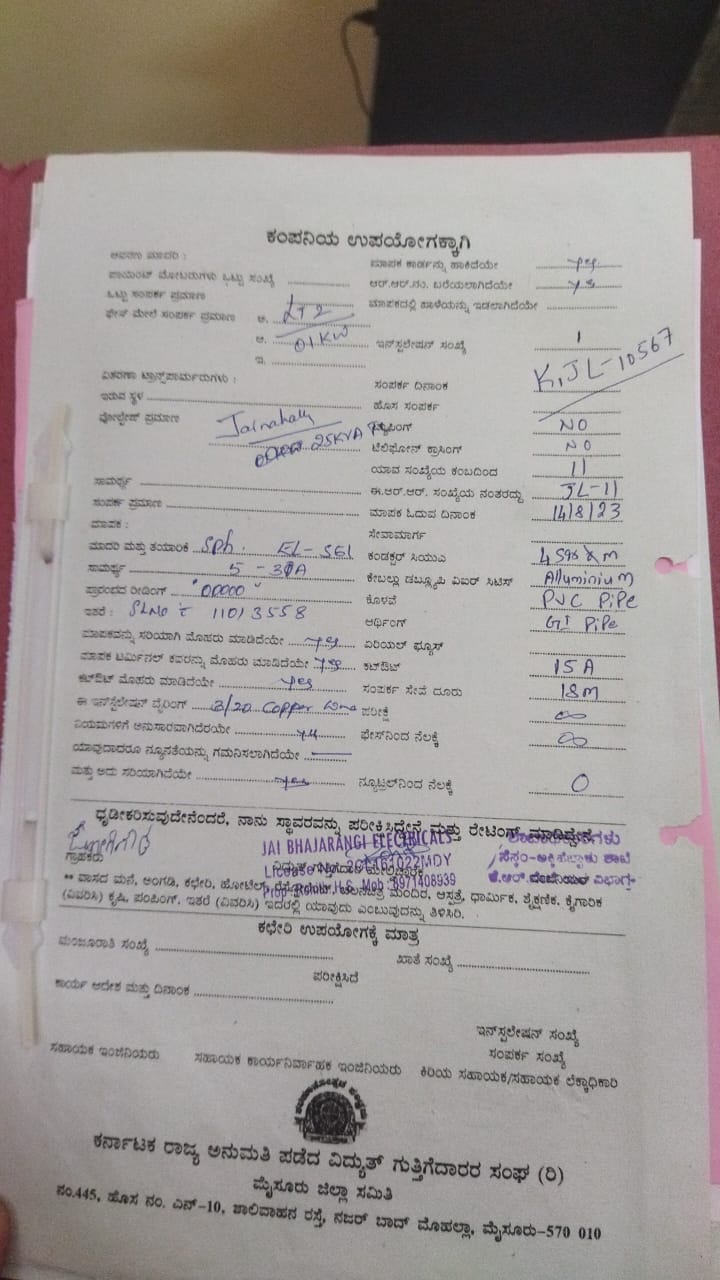 ಕಂಪನಿಯ ಉಪಯೋಗಕ್ಕಾಗಿ
ಆವರಣ ಮಾದರಿ : ಮಾಪಕ ಕಾರ್ಡನ್ನು ಹಾಕಿದೆಯೇ yes
ಪಾಯಿಂಟ್ ಮೋಟರುಗಳು ಒಟ್ಟು ಸಂಖ್ಯೆ ಆರ್.ಆರ್.ನಂ. ಬರೆಯಲಾಗಿದೆಯೇ yes
ಒಟ್ಟು ಸಂಪರ್ಕ ಪ್ರಮಾಣ ಮಾಪಕದಲ್ಲಿ ಹಾಳೆಯನ್ನು ಇಡಲಾಗಿದೆಯೇ
ಫೇಸ್ ಮೇಲೆ ಸಂಪರ್ಕ ಪ್ರಮಾಣ ಅ. LT2
ಆ. 01KW ಇನ್‌ಸ್ಟಲೇಷನ್ ಸಂಖ್ಯೆ 1
ಇ.
ವಿತರಣಾ ಟ್ರಾನ್ಸ್‌ಪಾರ್ಮರುಗಳು : ಸಂಪರ್ಕ ದಿನಾಂಕ KJJL-10567
ಇರುವ ಸ್ಥಳ ಹೊಸ ಸಂಪರ್ಕ
ವೋಲ್ಟೇಜ್ ಪ್ರಮಾಣ ಟ್ಯಾಪಿಂಗ್ NO
25KVA ಟೆಲಿಫೋನ್ ಕ್ರಾಸಿಂಗ್ NO
ಯಾವ ಸಂಖ್ಯೆಯ ಕಂಬದಿಂದ 11
ಸಾಮರ್ಥ್ಯ ಈ.ಆರ್.ಆರ್. ಸಂಖ್ಯೆಯ ನಂತರದ್ದು JL-11
ಸಂಪರ್ಕ ಪ್ರಮಾಣ ಮಾಪ ಓದುಪ ದಿನಾಂಕ 14/8/23
ಮಾಪಕ : ಸೇವಾಮಾರ್ಗ
ಮಾದರಿ ಮತ್ತು ತಯಾರಿಕೆ Sph. EL-SEL ಕಂಡಕ್ಟರ್ ಸಿಯುಎ
ಸಾಮರ್ಥ್ಯ 5-30A ಕೇಬಲ್ಲು ಡಬ್ಲ್ಯೂಪಿ ವಿಐರ್ ಸಿಟಿಸ್ Alluminium
ಪ್ರಾರಂಭದ ರೀಡಿಂಗ್ "00000" ಕೊಳವೆ PVC PiPe
ಇತರೆ : SLNo = 11013558 ಅರ್ಥಿಂಗ್ GI PiPe
ಮಾಪಕವನ್ನು ಸರಿಯಾಗಿ ಮೊಹರು ಮಾಡಿದೆಯೇ yes ಏರಿಯಲ್ ಫ್ಯೂಸ್
ಮಾಪಕ ಟರ್ಮಿನಲ್ ಕವರನ್ನು ಮೊಹರು ಮಾಡಿದೆಯೇ yes ಕಟ್‌ಔಟ್ 15A
ಕಟ್‌ಔಟ್ ಮೊಹರು ಮಾಡಿದೆಯೇ yes ಸಂಪರ್ಕ ಸೇವೆ ದೂರು 18M
ಈ ಇನ್‌ಸ್ಟಲೇಷನ್ ವೈರಿಂಗ್ 3/20 Copper wire ಪರೀಕ್ಷೆ ∞
ನಿಯಮಗಳಿಗೆ ಅನುಸಾರವಾಗಿದೆರೆಯೇ yes ಫೇಸ್‌ನಿಂದ ನೆಲಕ್ಕೆ ∞
ಯಾವುದಾದರೂ ನ್ಯೂನತೆಯನ್ನು ಗಮನಿಸಲಾಗಿದೆಯೇ
ಮತ್ತು ಅದು ಸರಿಯಾಗಿದೆಯೇ yes ನ್ಯೂಟ್ರಲ್‌ನಿಂದ ನೆಲಕ್ಕೆ 0
ಧೃಡೀಕರಿಸುವುದೇನೆಂದರೆ, ನಾನು ಸ್ಥಾವರವನ್ನು ಪರೀಕ್ಷಿಸಿದ್ದೇನೆ ಮತ್ತು ರೇಟಿಂಗ್ ಮಾಡಿದ್ದೇನೆ
JAI BHAJARANGI ELECTRICALS
ಗ್ರಾಹಕರು ವಿದ್ಯುತ್ ಗುತ್ತಿಗೆದಾರ
License No. MDY
Mob : 8971408939
** ವಾಸದ ಮನೆ, ಅಂಗಡಿ, ಕಛೇರಿ, ಹೋಟೆಲ್, ಮಂದಿರ, ಆಸ್ಪತ್ರೆ, ಧಾರ್ಮಿಕ, ಶೈಕ್ಷಣಿಕ, ಕೈಗಾರಿಕ
(ವಿವರಿಸಿ) ಕೃಷಿ, ಪಂಪಿಂಗ್, ಇತರೆ (ವಿವರಿಸಿ) ಇದರಲ್ಲಿ ಯಾವುದು ಎಂಬುವುದನ್ನು ತಿಳಿಸಿರಿ.
ಕಛೇರಿ ಉಪಯೋಗಕ್ಕೆ ಮಾತ್ರ
ಮಂಜೂರಾತಿ ಸಂಖ್ಯೆ ಖಾತೆ ಸಂಖ್ಯೆ
ಪರೀಕ್ಷಿಸಿದೆ
ಕಾರ್ಯ ಆದೇಶ ಮತ್ತು ದಿನಾಂಕ
ಇನ್‌ಸ್ಟಲೇಷನ್ ಸಂಖ್ಯೆ
ಸಂಪರ್ಕ ಸಂಖ್ಯೆ
ಸಹಾಯಕ ಇಂಜಿನಿಯರು ಸಹಾಯಕ ಕಾರ್ಯನಿರ್ವಾಹಕ ಇಂಜಿನಿಯರು ಕಿರಿಯ ಸಹಾಯಕ/ಸಹಾಯಕ ಲೆಕ್ಕಾಧಿಕಾರಿ
ಕರ್ನಾಟಕ ರಾಜ್ಯ ಅನುಮತಿ ಪಡೆದ ವಿದ್ಯುತ್ ಗುತ್ತಿಗೆದಾರರ ಸಂಘ (ರಿ)
ಮೈಸೂರು ಜಿಲ್ಲಾ ಸಮಿತಿ
ನಂ.445, ಹೊಸ ನಂ. ಎನ್-10, ಶಾಲಿವಾಹನ ರಸ್ತೆ, ನಜರ್ ಬಾದ್ ಮೊಹಲ್ಲಾ, ಮೈಸೂರು-570 010